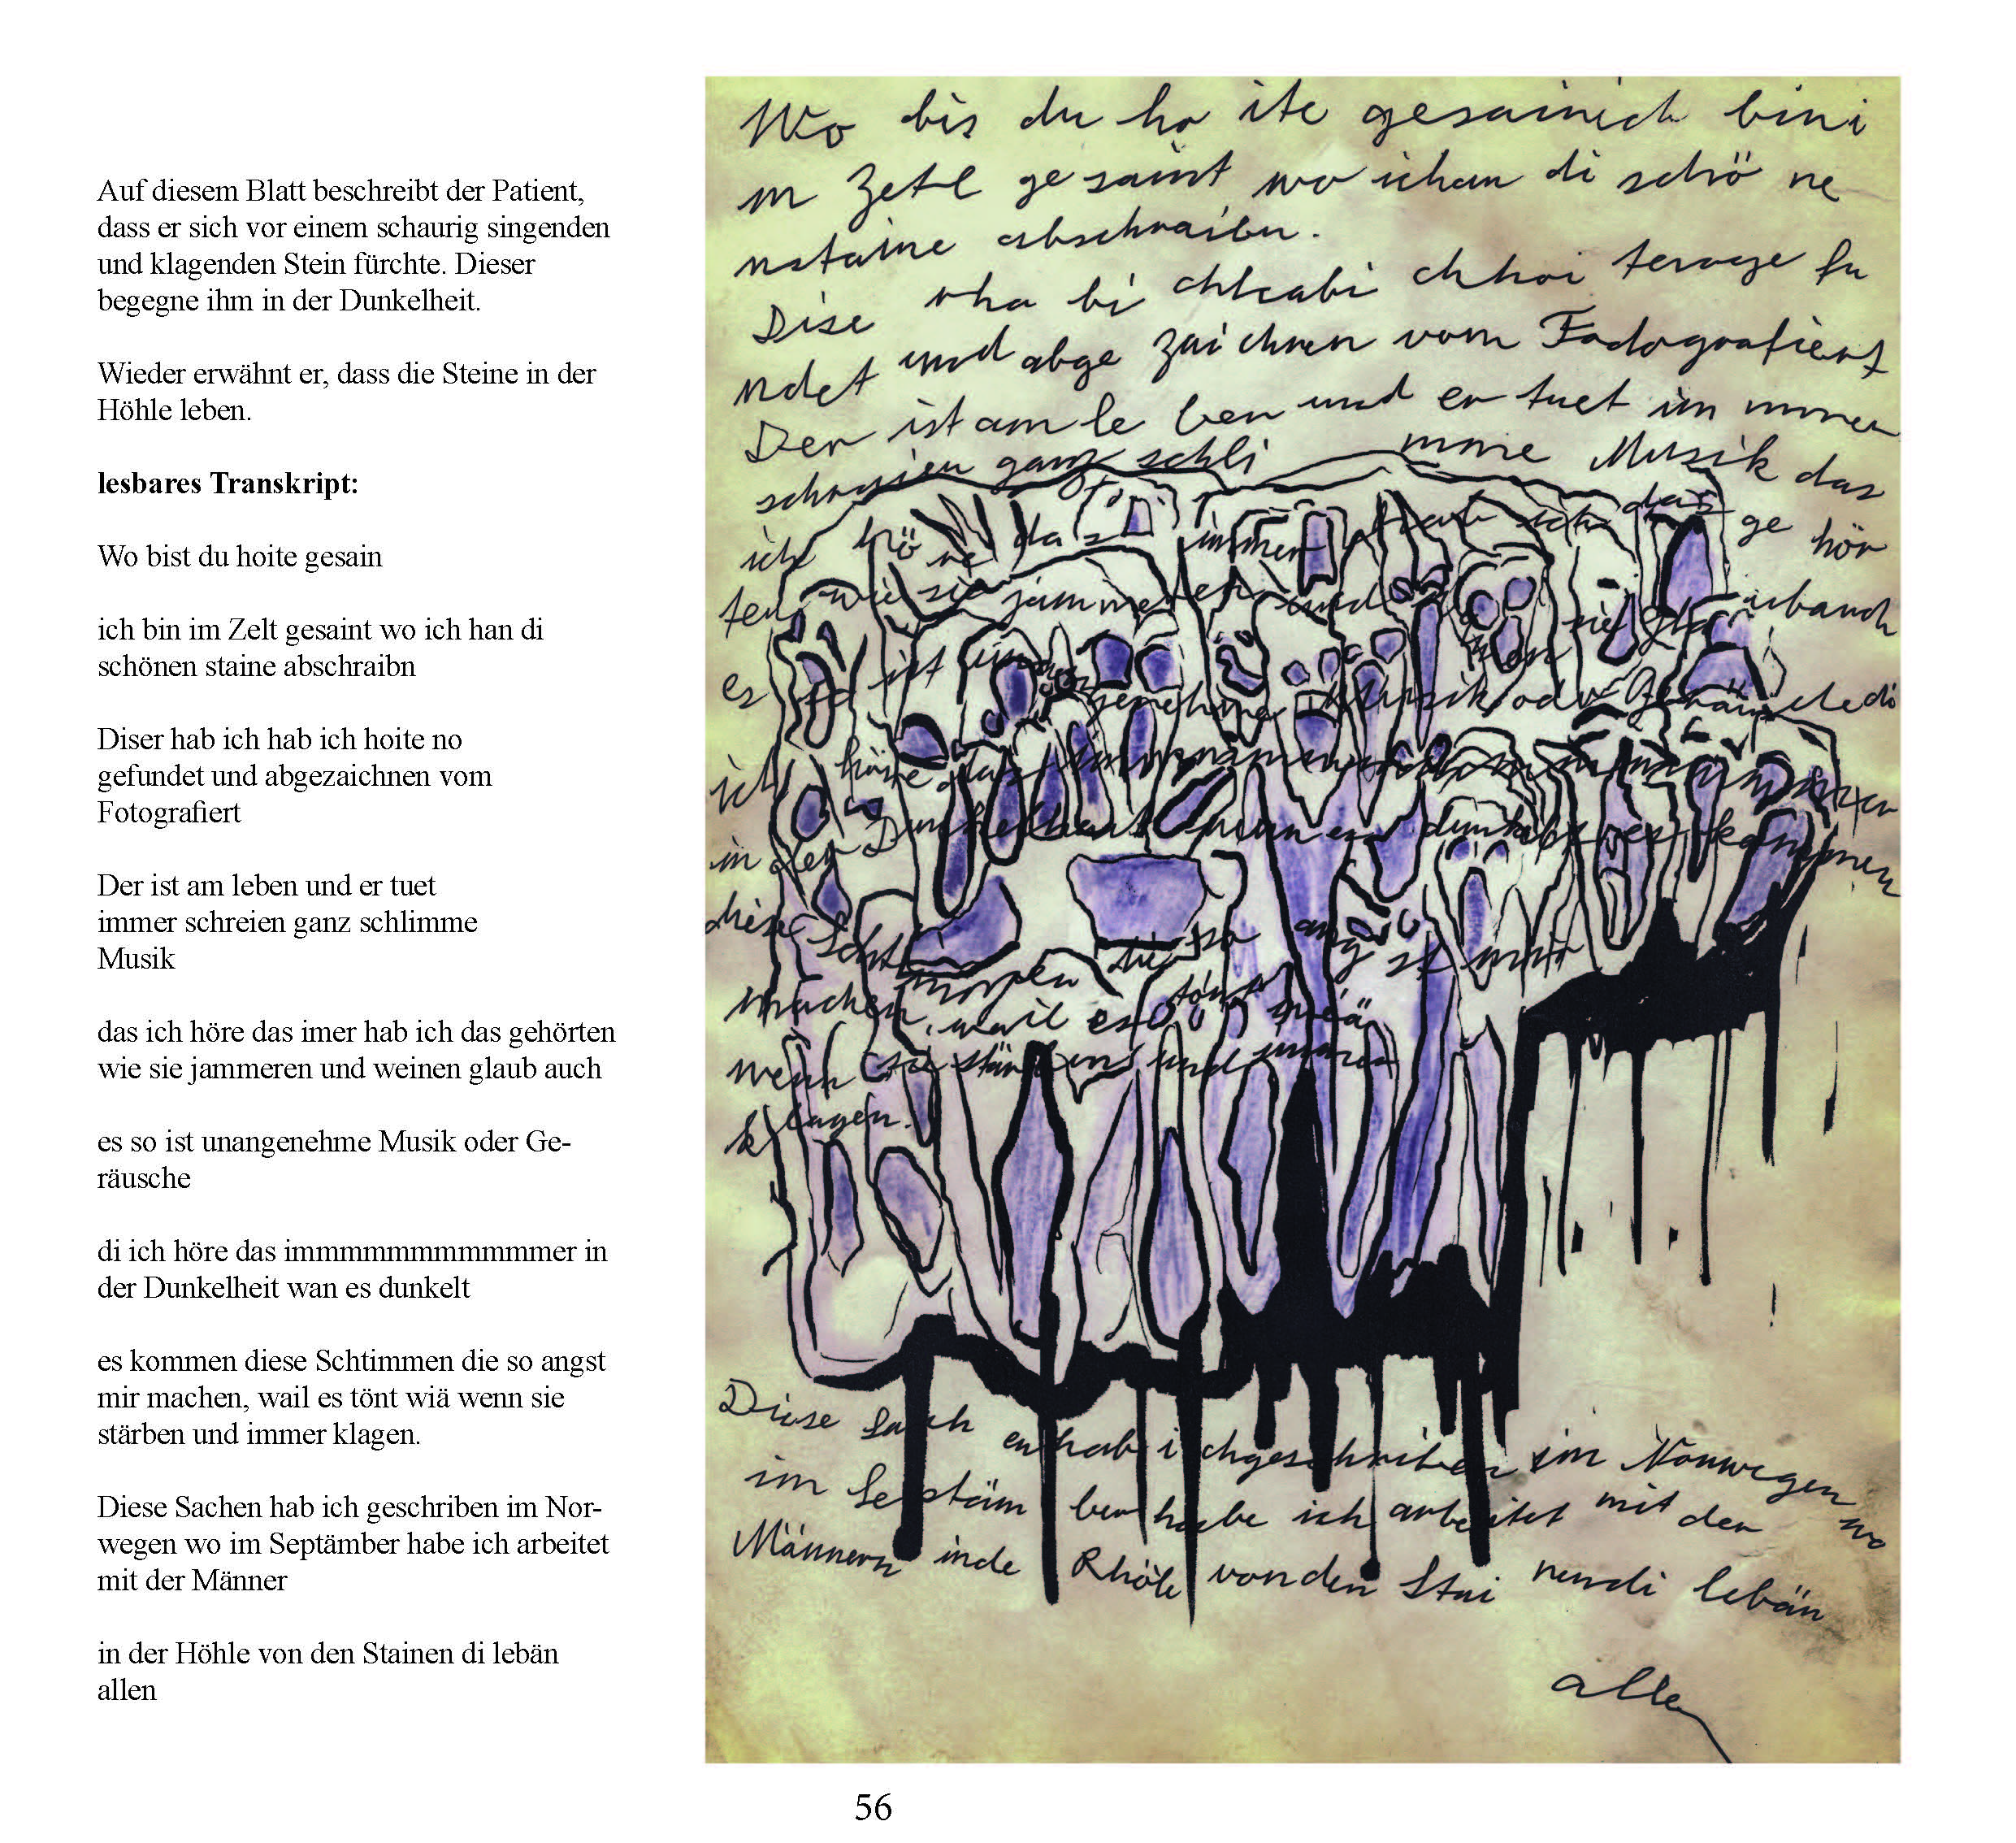 Auf diesem Blatt beschreibt der Patient,
dass er sich vor einem schaurig singenden
und klagenden Stein fürchte. Dieser
begegne ihm in der Dunkelheit.
Wieder erwähnt er, dass die Steine in der
Höhle leben.
lesbares Transkript:
Wo bist du hoite gesain
ich bin im Zelt gesaint wo ich han di
schönen staine abschraibn
Diser hab ich hab ich hoite no
gefundet und abgezaichnen vom
Fotografiert
Der ist am leben und er tuet
immer schreien ganz schlimme
Musik
das ich höre das imer hab ich das gehörten
wie sie jammeren und weinen glaub auch
es so ist unangenehme Musik oder Ge-
räusche
di ich höre das immmmmmmmmmmer in
der Dunkelheit wan es dunkelt
es kommen diese Schtimmen die so angst
mir machen, wail es tönt wiä wenn sie
stärben und immer klagen.
Diese Sachen hab ich geschriben im Nor-
wegen wo im Septämber habe ich arbeitet
mit der Männer
in der Höhle von den Stainen di lebän
allen
Wo bis du ho ite gesainich bini
m Zetl ge saint wo ichan di schö ne
nstaine abschraibn.
Dise rha bi chhabi chhoi terage fu
ndet und abge zaichnen vom Fodografiert
Der ist am le ben und er tuet im mmer
schreien ganz schli mme Musik das
ich höre das immer hab ich das ge hör
ten wie sie jammeren und sie glaubauch
es so ist Musik oder Geräusche di
ich höre das
in der Dunkelhait wann es dunkelt es kommen
diese Scht die so ang st mir
machen, wail es tönt wiä
wenn sie stärben und immer
klagen.
Diese Sach en hab ichgeschriben im Norwegen wo
im Septäm ber habe ich arbeitet mit der
Männern inde Rhöle vonden Stai nendi lebän
alle
56